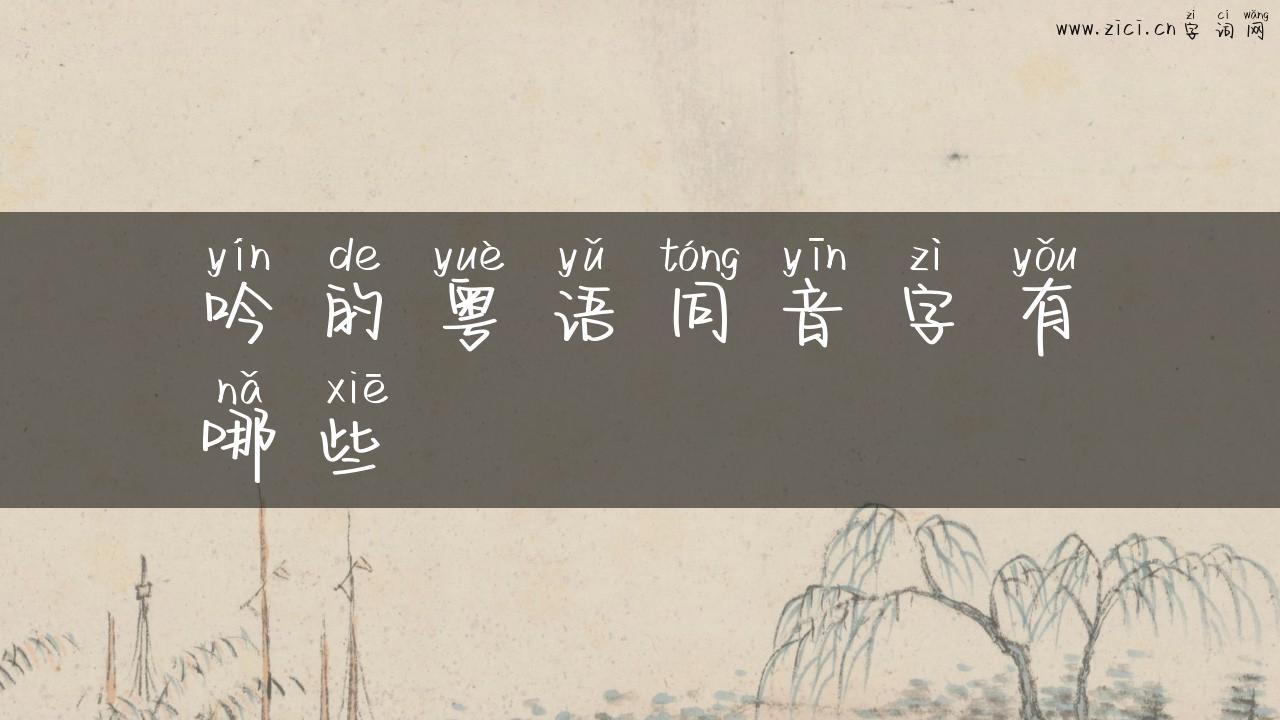 zì cí wǎng
www.zici.cn 字词网
yín de yuè yǔ tóng yīn zì yǒu
吟的粤语同音字有
nǎ xiē
哪些